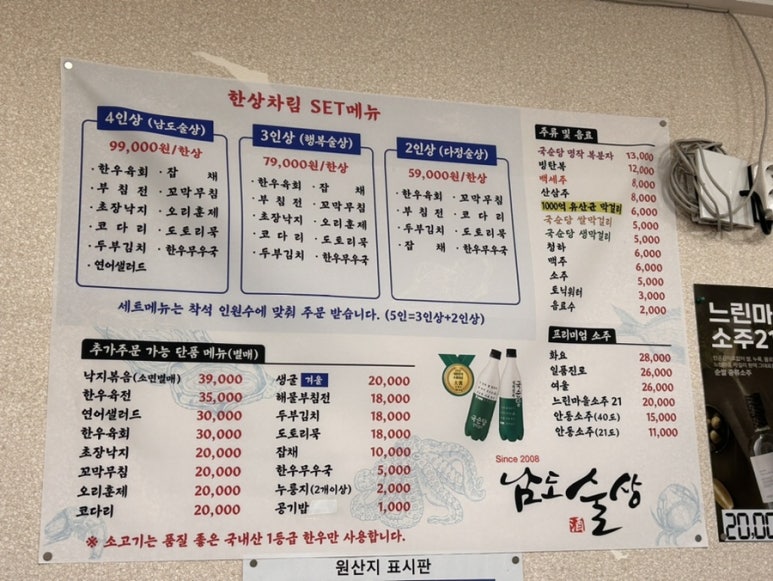 한상차림 SET메뉴
4인상 (남도술상)
99,000원/한상
·한우육회 ·잡 채
·부 침 전 ·꼬막무침
·초장낙지 ·오리훈제
·코 다 리 ·도토리묵
·두부김치 ·한우무우국
·연어샐러드
3인상 (행복술상)
79,000원/한상
·한우육회 ·잡 채
·부 침 전 ·꼬막무침
·초장낙지 ·오리훈제
·코 다 리 ·도토리묵
·두부김치 ·한우무우국
2인상 (다정술상)
59,000원/한상
·한우육회 ·꼬막무침
·부 침 전 ·코 다 리
·두부김치 ·도토리묵
·잡 채 ·한우무우국
세트메뉴는 착석 인원수에 맞춰 주문 받습니다. (5인=3인상+2인상)
주류 및 음료
국순당 명작 복분자 13,000
빙탄복 12,000
백세주 8,000
산삼주 8,000
1000억 유산균 막걸리 6,000
국순당 쌀막걸리 5,000
국순당 생막걸리 5,000
청하 6,000
맥주 6,000
소주 5,000
토닉워터 3,000
음료수 2,000
프리미엄 소주
화요 28,000
일품진로 26,000
여울 26,000
느린마을소주 21 20,000
안동소주(40도) 15,000
안동소주(21도) 11,000
추가주문 가능 단품 메뉴(별매)
낙지볶음(소면별매) 39,000
한우육전 35,000
연어샐러드 30,000
한우육회 30,000
초장낙지 20,000
꼬막무침 20,000
오리훈제 20,000
코다리 20,000
생굴 겨울 20,000
해물부침전 18,000
두부김치 18,000
도토리묵 18,000
잡채 10,000
한우무우국 5,000
누룽지(2개이상) 2,000
공기밥 1,000
※ 소고기는 품질 좋은 국내산 1등급 한우만 사용합니다.
국순당
Since 2008
남도술상
酒
원산지 표시판
느린마
소주21
20,00